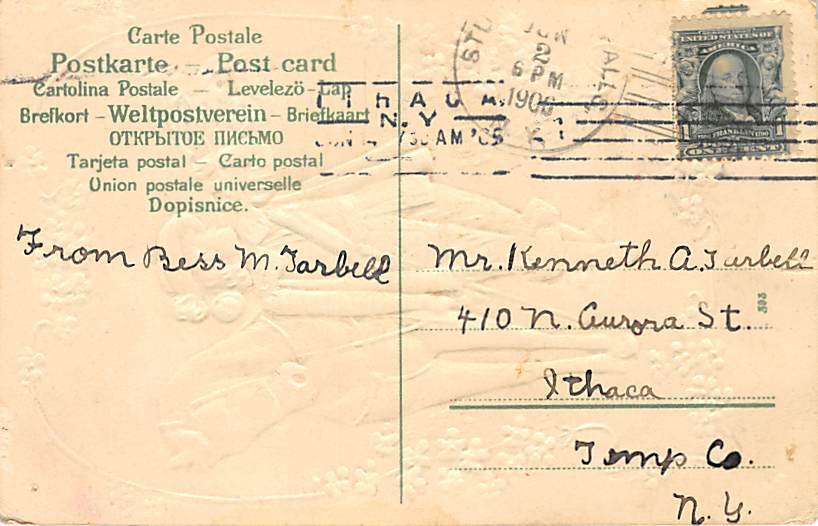 Carte Postale
Postkarte – Post card
Cartolina Postale – Levelezö-Lap
Brefkort – Weltpostverein – Briefkaart
ОТКРЫТОЕ ПИСЬМО
Tarjeta postal – Carto postal
Union postale universelle
Dopisnice.
6 PM
N.Y.
AM
UNITED STATES OF
AMERICA
1 FRANKLIN 1790 1
ONE CENT
From Bess M. Tarbell
Mr. Kenneth A. Tarbell
410 N. Aurora St.
Ithaca
Tomp Co.
N.Y.
393